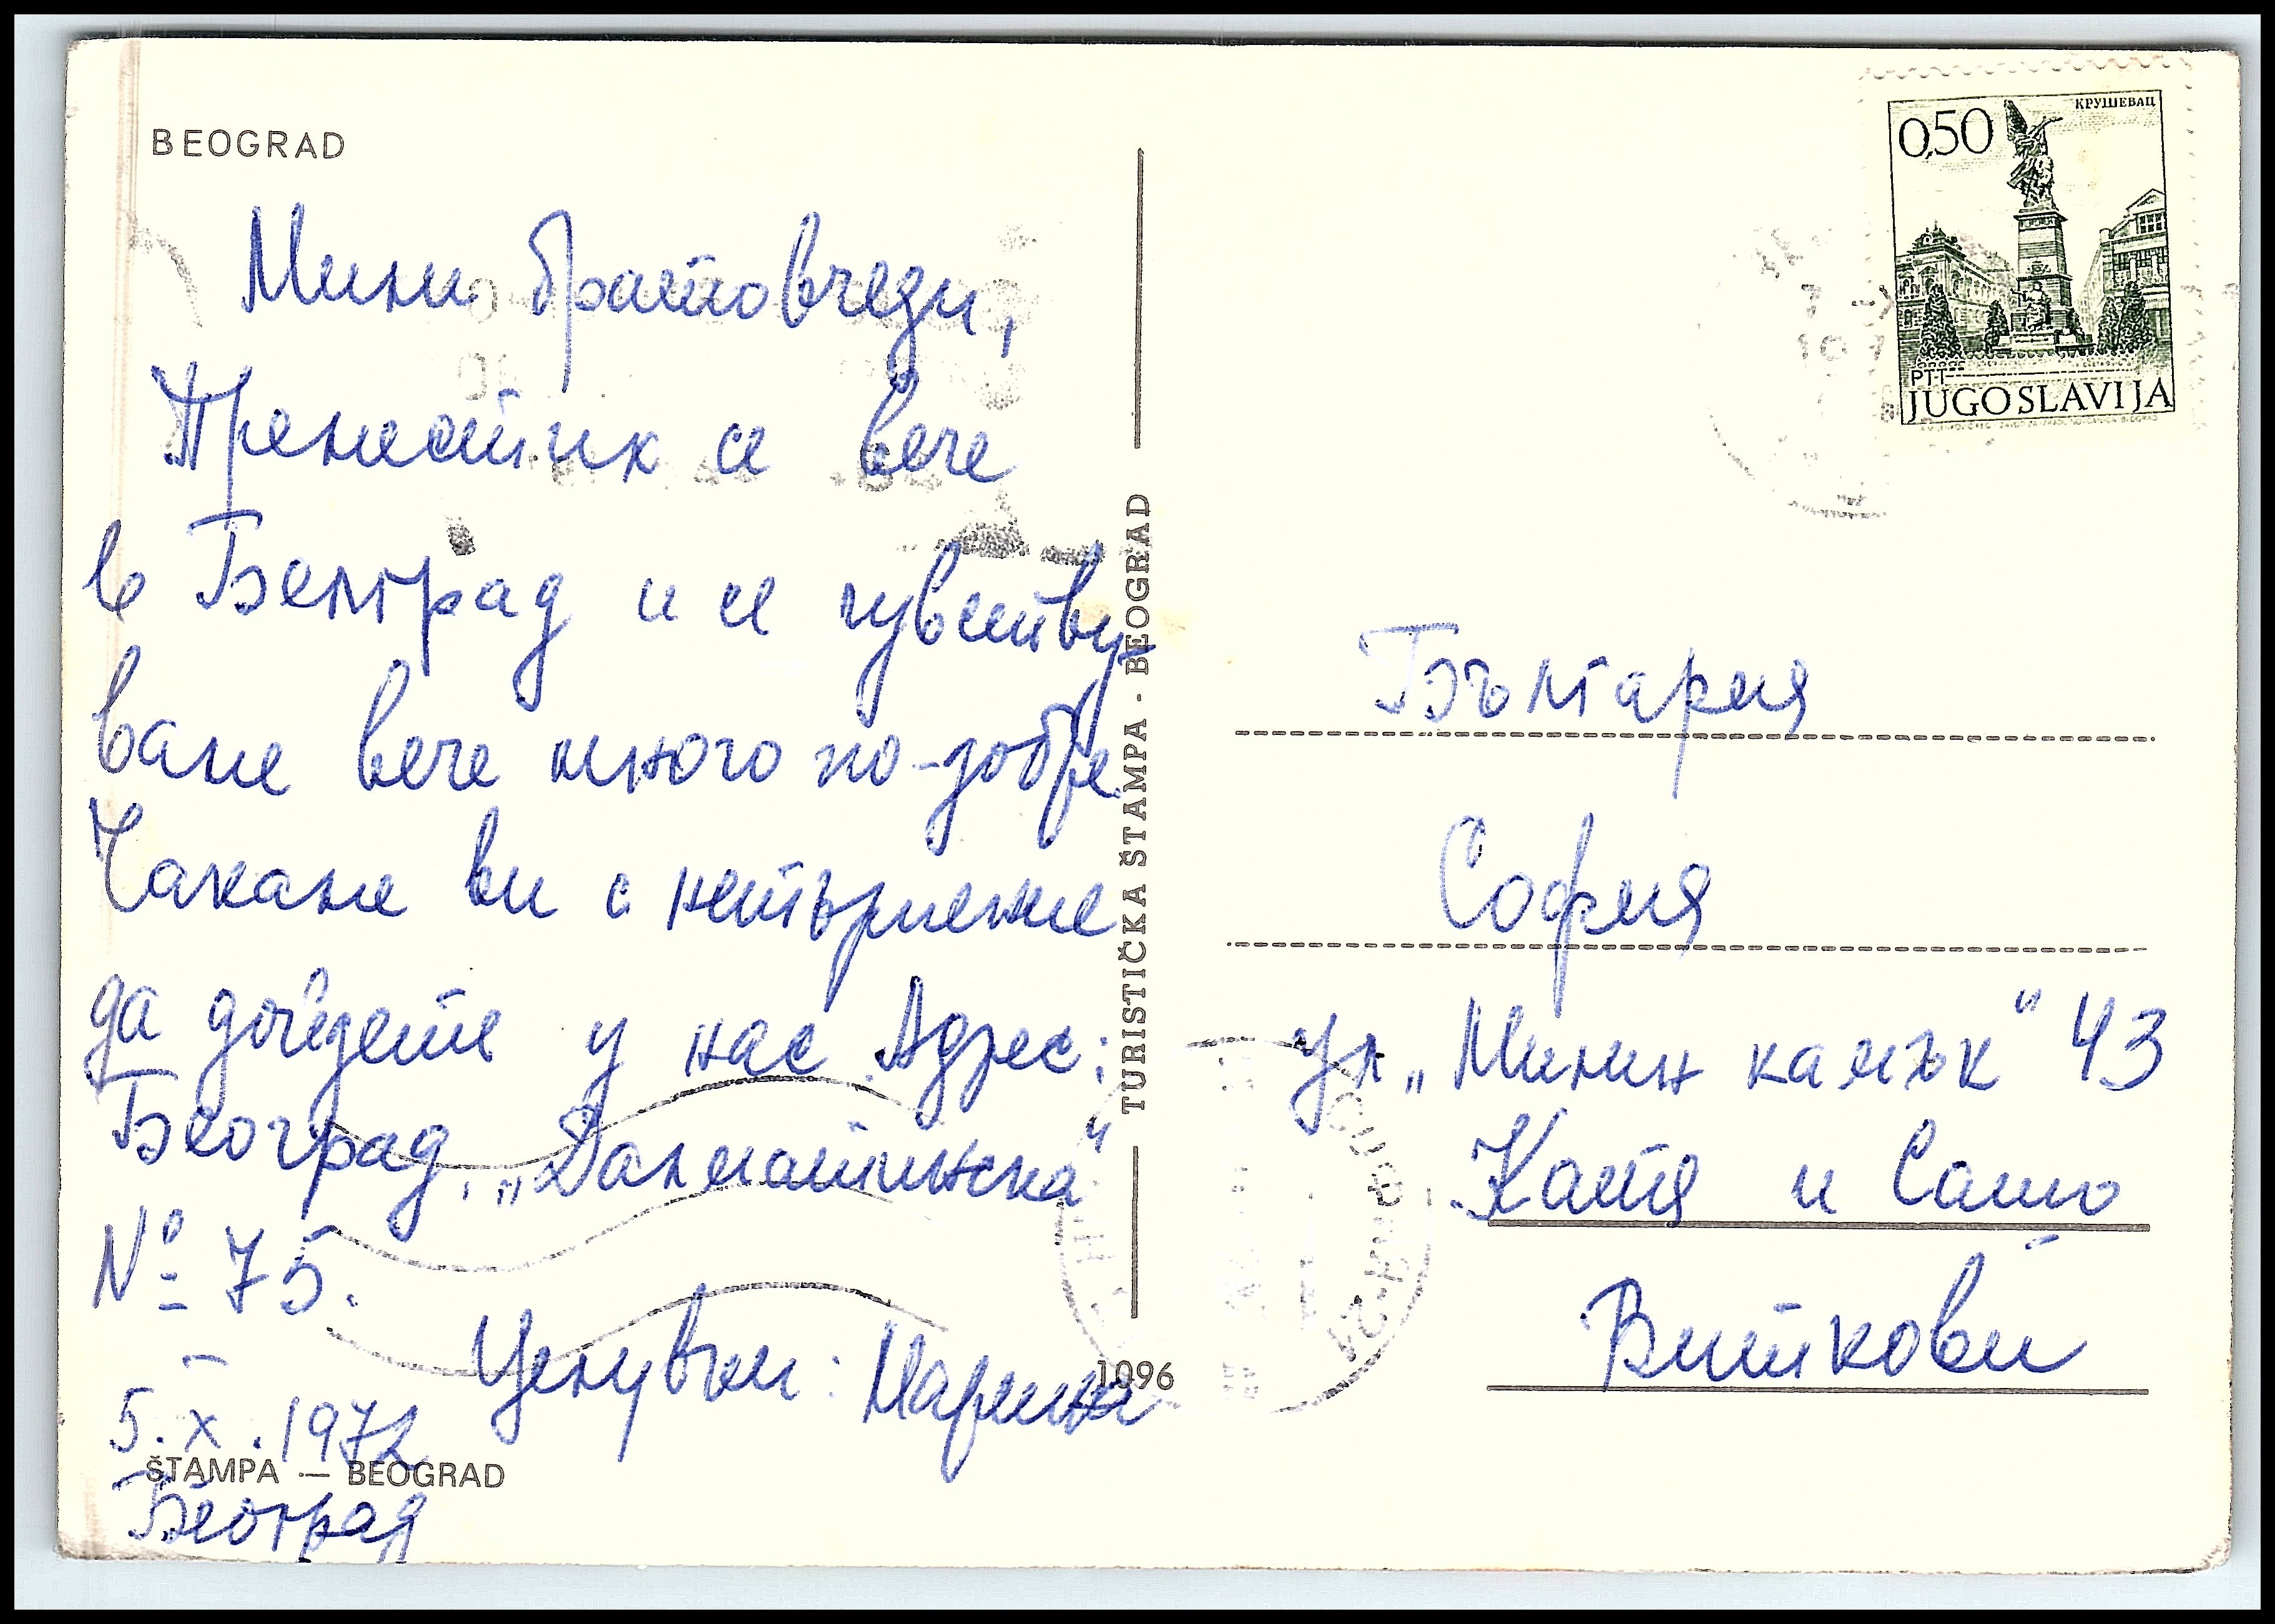 BEOGRAD
Мили братовчеди,
Преместих се вече
в Белград и се чувству-
ваме вече много по-добре.
Чакаме ви с нетърпение
да дойдете у нас. Адрес:
Београд, „Далматинска“
№ 75.
Целувки: Марина
5.X.1972
ŠTAMPA — BEOGRAD
Београд
TURISTIČKA ŠTAMPA - BEOGRAD
1096
КРУШЕВАЦ
0,50
PTT
JUGOSLAVIJA
България
София
ул „Милин камък“ 43
Катя и Сашо
Виткови